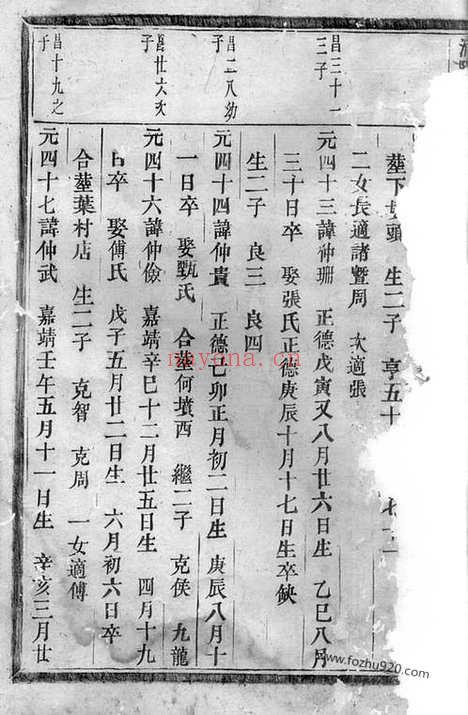 塟下
頭 生二子 亨五十
二女長適諸暨周 次適張
昌三十一
三子
元四十三諱仲珊 正德戊寅又八月廿六日生 乙巳八月
三十日卒 娶張氏正德庚辰十月十七日生卒缺
生二子 良三 良四
昌二八幼
子
元四十四諱仲貴 正德己卯正月初二日生 庚辰八月十
一日卒 娶甄氏 合塟何墳西 繼二子 克俟 九龍
昌廿六次
子
元四十六諱仲儉 嘉靖辛巳十二月廿五日生 四月十九
日卒 娶傅氏 戊子五月廿二日生 六月初六日卒
合塟葉村店 生二子 克智 克周 一女適傅
昌十九之
子
元四十七諱仲武 嘉靖壬午五月十一日生 辛亥三月廿
nayona.cn
www.fozhu920.com